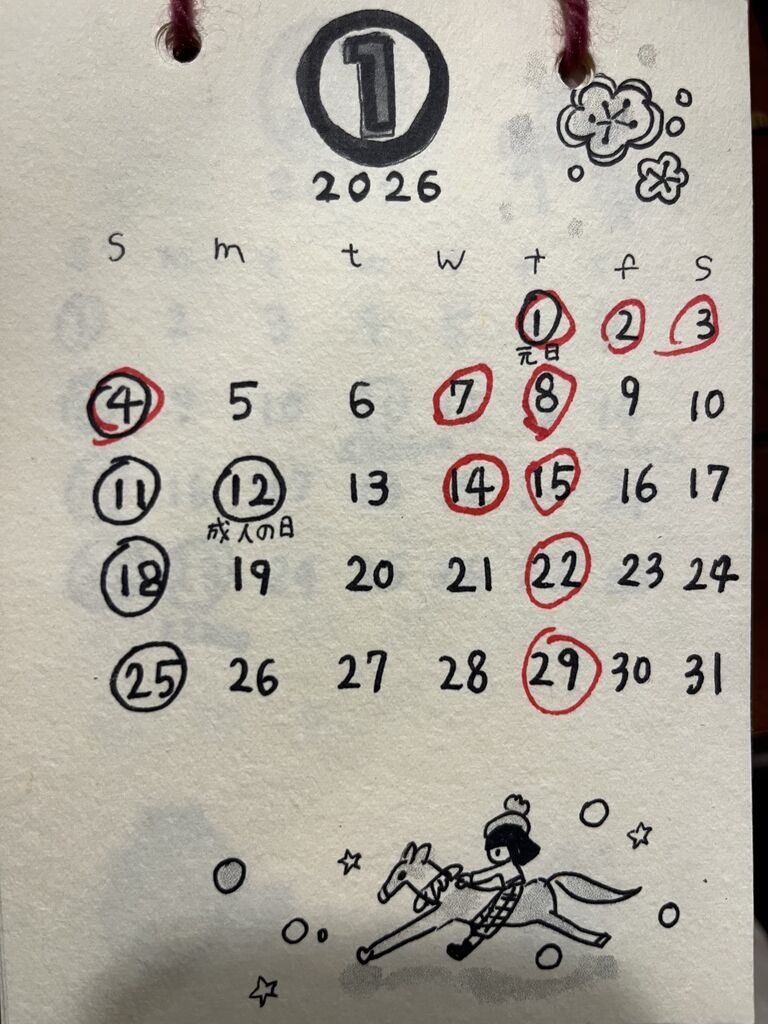 1
2026
S m t w T f S
1 2 3
元日
4 5 6 7 8 9 10
11 12 13 14 15 16 17
成人の日
18 19 20 21 22 23 24
25 26 27 28 29 30 31